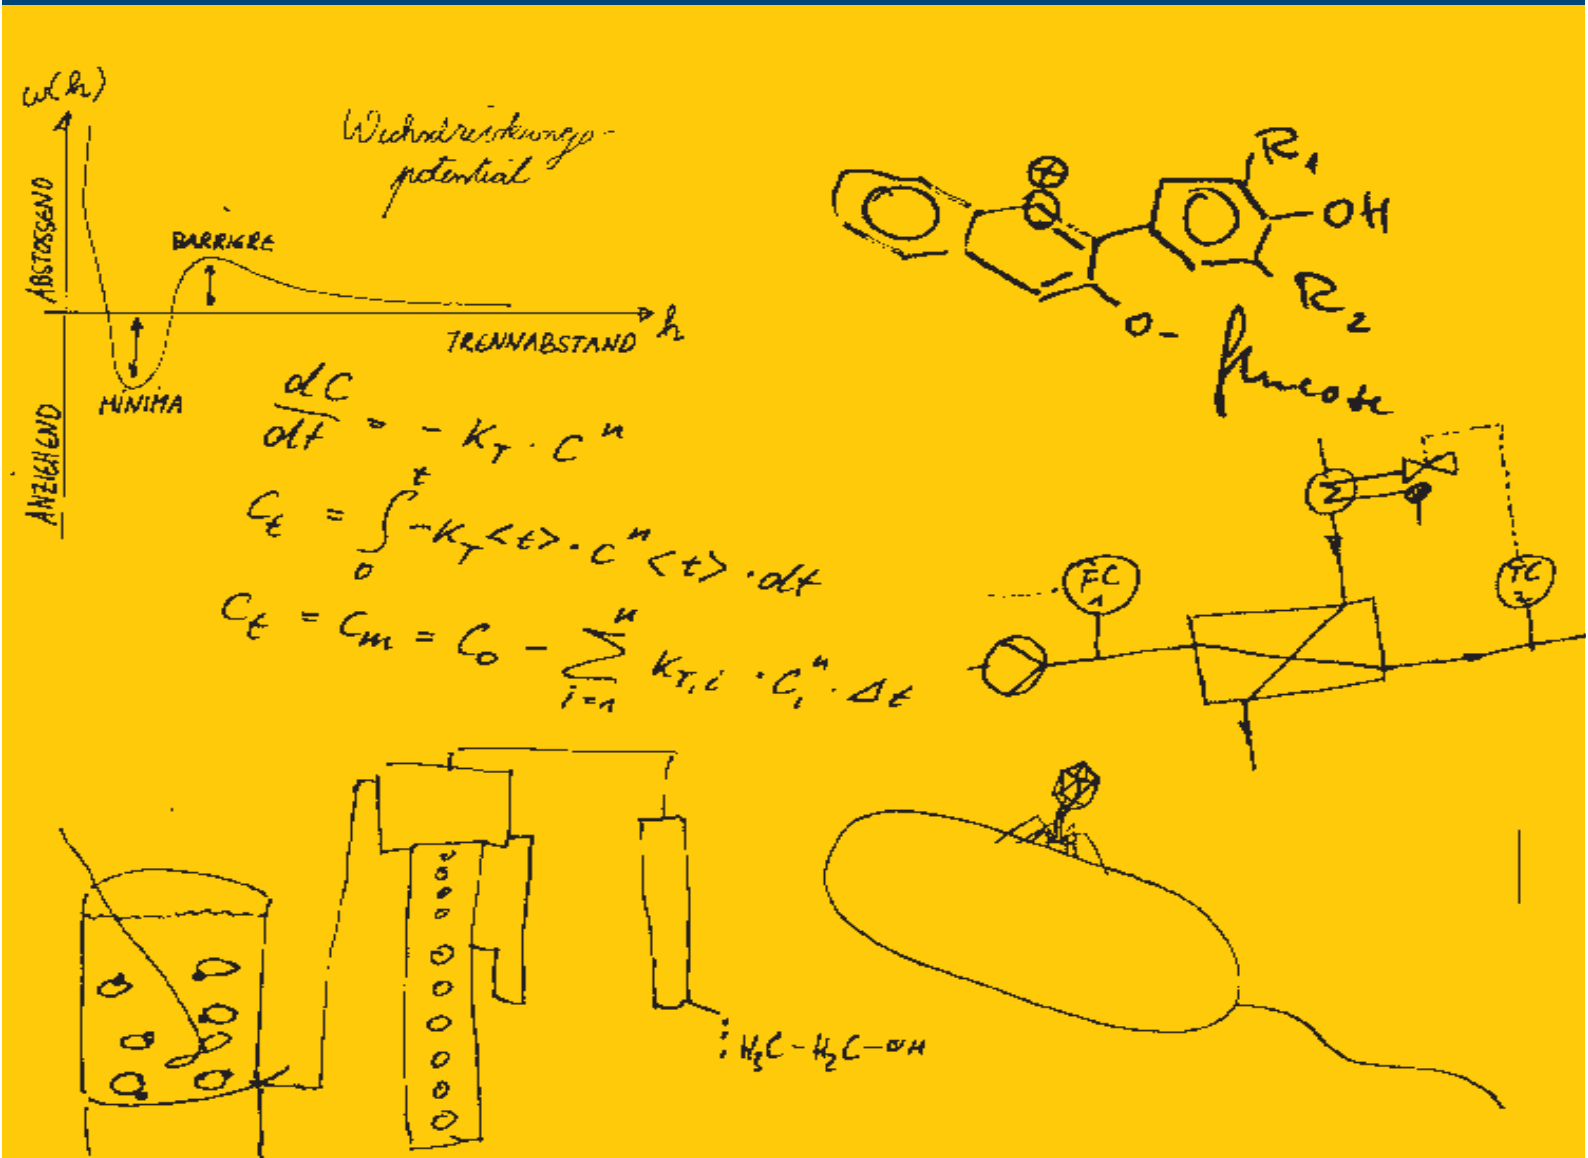 w(h)
Wechselwirkungs-
potential
ABSTOSSEND
BARRIERE
TRENNABSTAND
h
MINIMA
ANZIEHEND
dC/dt = - K_T · C^n
C_t = ∫_0^t -K_T <t> · C^n <t> · dt
C_t = C_m = C_0 - Σ_{i=1}^n K_{T,i} · C_i^n · Δt
⊕
R1
OH
R2
O-
FC
1
TC
2
H3C-H2C-OH